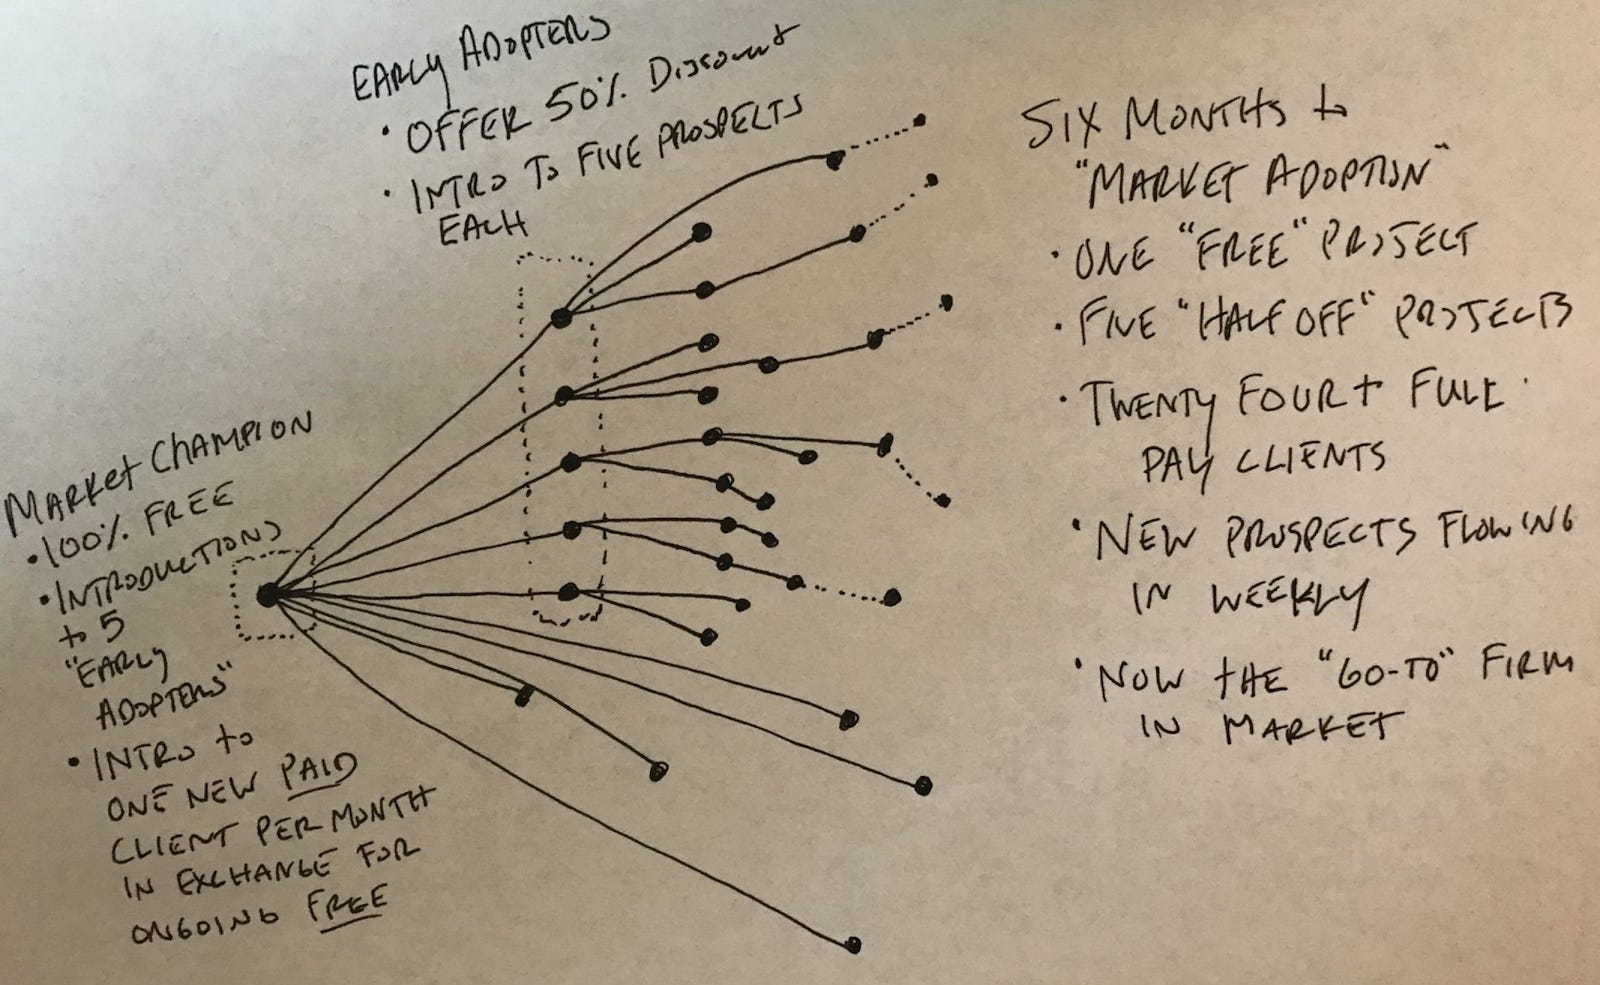 EARLY ADOPTERS
• OFFER 50% Discount
• INTRO TO FIVE PROSPECTS
EACH
MARKET CHAMPION
• 100% FREE
• INTRODUCTIONS
to 5
"EARLY
ADOPTERS"
• INTRO to
ONE NEW PAID
CLIENT PER MONTH
IN EXCHANGE FOR
ONGOING FREE
SIX MONTHS to
"MARKET ADOPTION"
• ONE "FREE" PROJECT
• FIVE "HALF OFF" PROJECTS
• TWENTY FOUR + FULL
PAY CLIENTS
• NEW PROSPECTS FLOWING
IN WEEKLY
• NOW THE "GO-TO" FIRM
IN MARKET